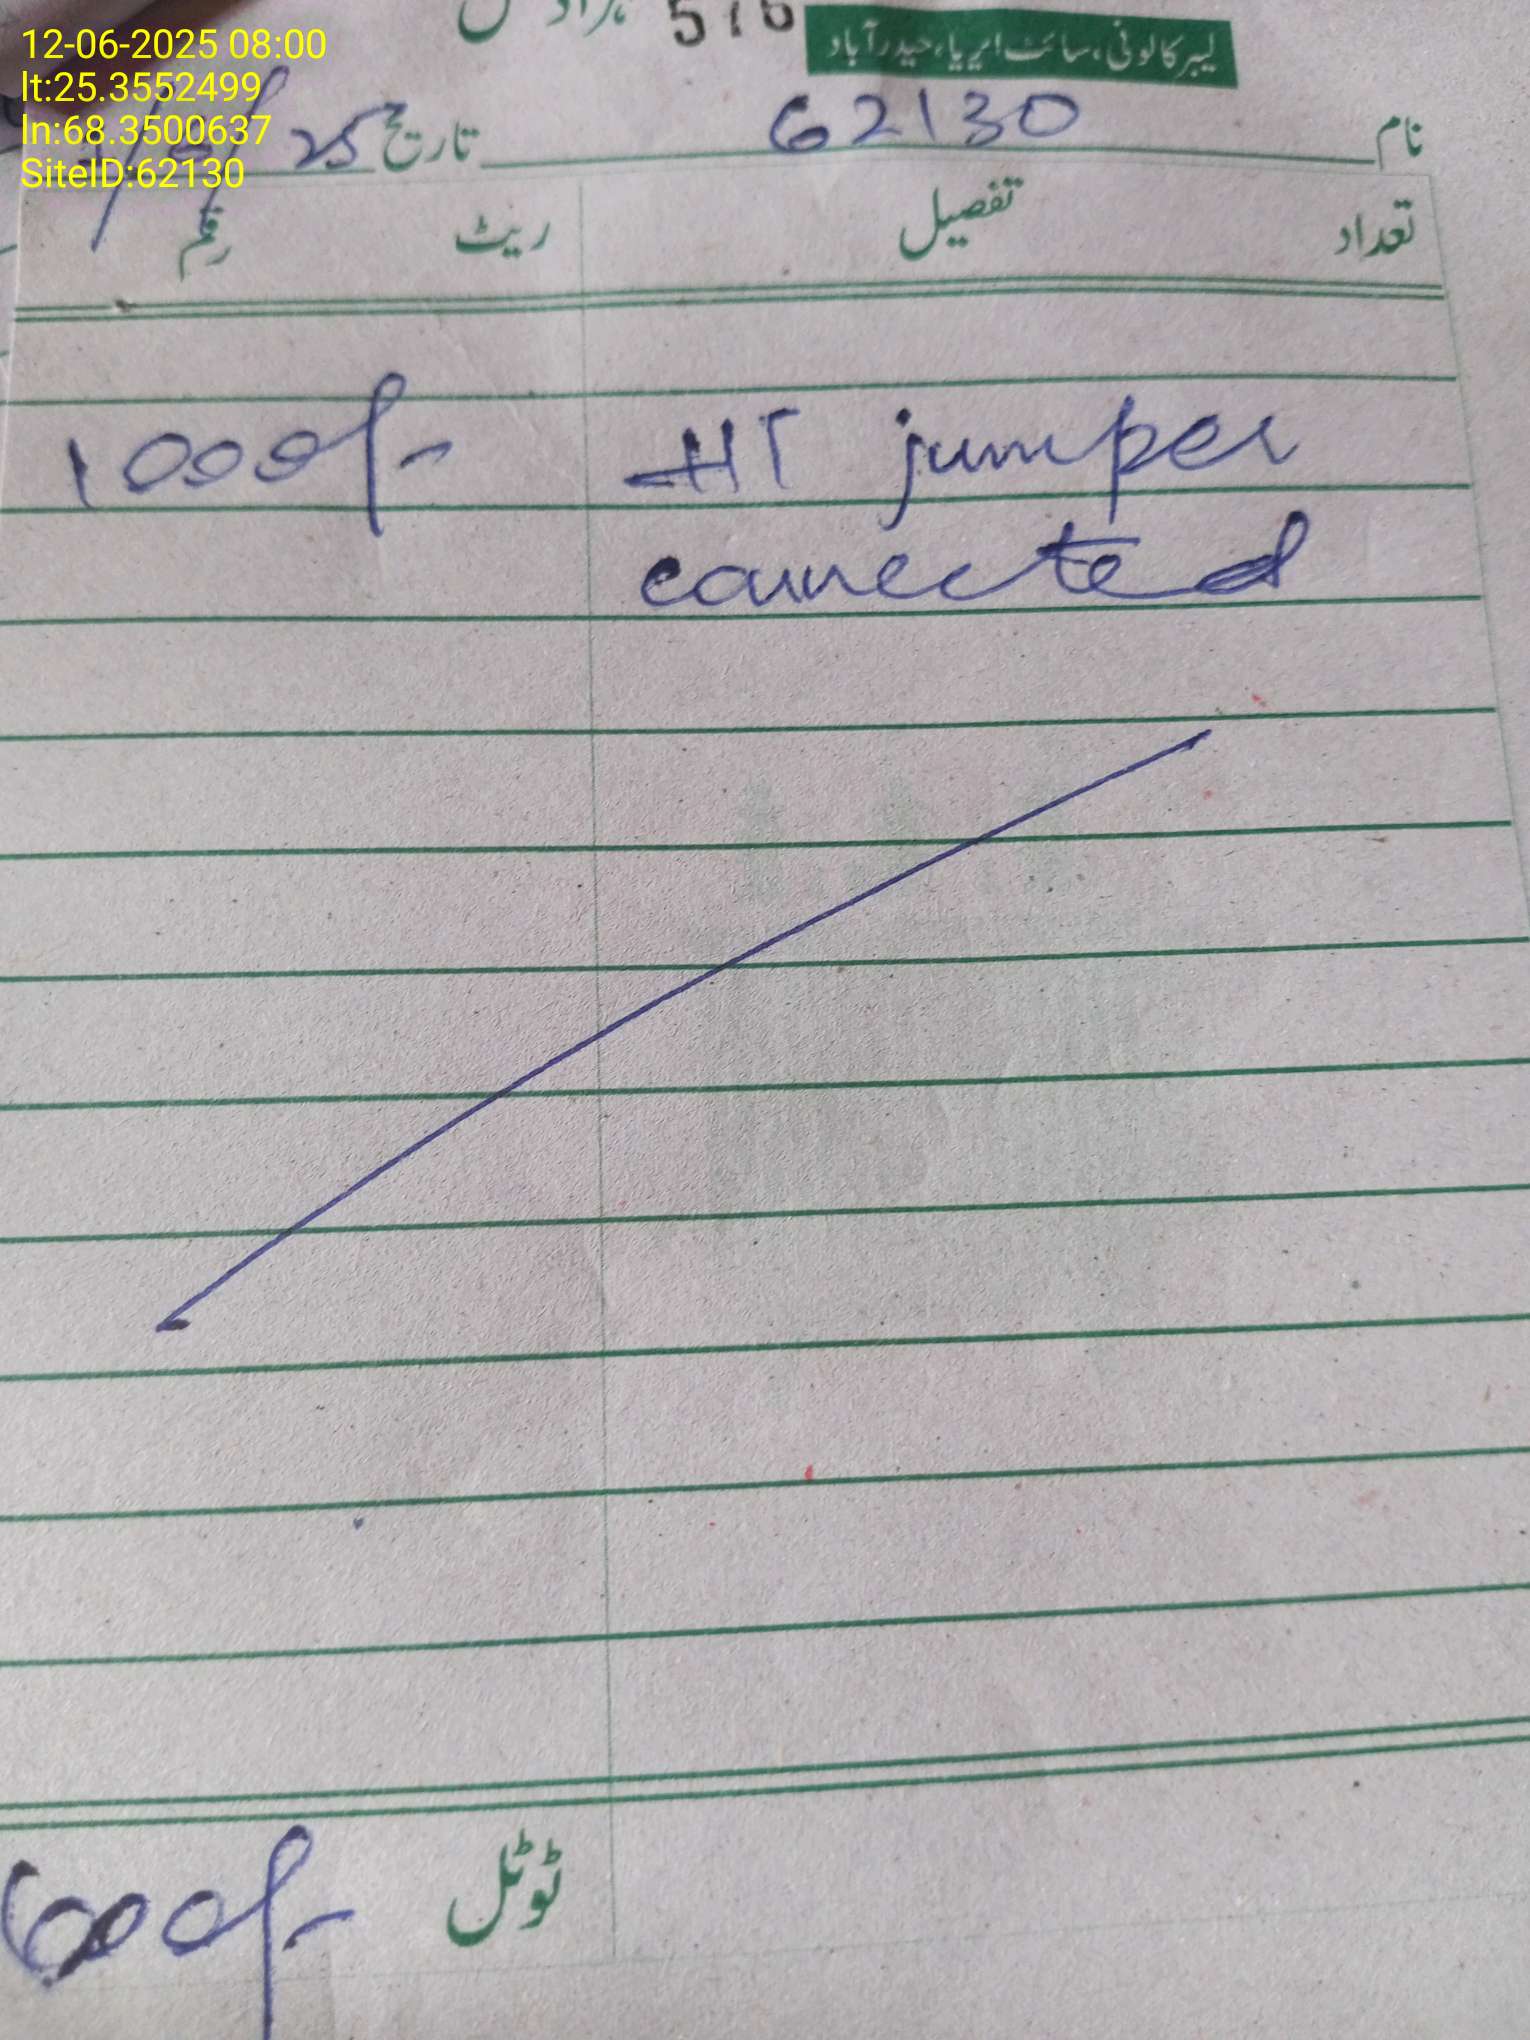 12-06-2025 08:00
lt:25.3552499
ln:68.3500637
SiteID:62130
576
لیبر کالونی، سائٹ ایریا، حیدرآباد
نام 62130 تاریخ 25
تعداد تفصیل ریٹ رقم
HT jumper 1000/-
connected
ٹوٹل